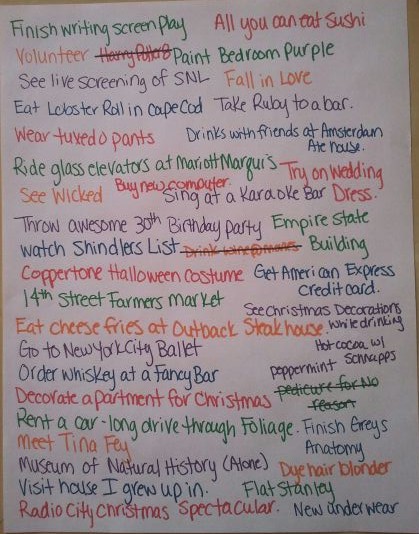 Finish writing screenplay   All you can eat Sushi
Volunteer   Harry Potter 8   Paint Bedroom Purple
See live screening of SNL   Fall in Love
Eat Lobster Roll in Cape Cod   Take Ruby to a bar.
Wear tuxedo pants   Drinks with friends at Amsterdam
Ale house.
Ride glass elevators at Mariott Marqui's   Try on Wedding
See Wicked   Buy new computer.   Sing at a Karaoke Bar   Dress.
Throw awesome 30th Birthday party   Empire State
Watch Shindlers List   Drink wine @   Building
Coppertone Halloween Costume   Get American Express
14th Street Farmers Market   Credit card.
See Christmas Decorations
Eat cheese fries at Outback Steakhouse.   while drinking
Go to New York City Ballet   Hot cocoa w/
Order whiskey at a Fancy Bar   peppermint Schnapps
Decorate apartment for Christmas   pedicure for No
reason
Rent a car - long drive through Foliage.   Finish Greys
Meet Tina Fey   Anatomy
Museum of Natural History (Alone)   Dye hair blonder
Visit house I grew up in.   Flat Stanley
Radio City Christmas Spectacular.   New underwear